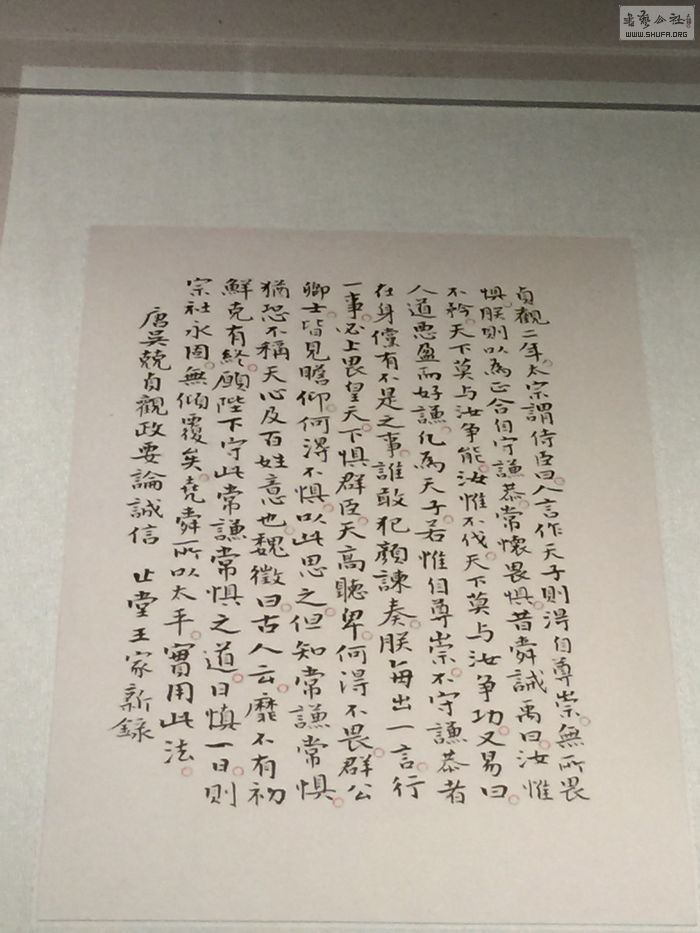 貞觀二年。太宗謂侍臣曰。人言作天子則淂自尊崇。無所畏
懼。朕則以為正合自守謙恭。常懷畏懼。昔舜誡禹曰。汝惟
不矜。天下莫与汝争能。汝惟不伐。天下莫与汝争功。又易曰。
人道惡盈而好謙。凡為天子。若惟自尊崇。不守謙恭者
在身儻有不是之事。誰敢犯顏諫奏。朕每出一言。行
一事。必上畏皇天。下懼群臣。天高聽卑。何淂不畏。群公
卿士。皆見瞻仰。何淂不懼。以此思之。但知常謙常懼。
猶恐不稱天心及百姓意也。魏徵曰。古人云。靡不有初
鮮克有終。願陛下守此常謙常懼之道。日慎一日。則
宗社永固。無傾覆矣。堯舜所以太平。實用此法。
唐吳兢貞觀政要論誠信 止堂王家新錄
書藝公社
WWW.SHUFA.ORG